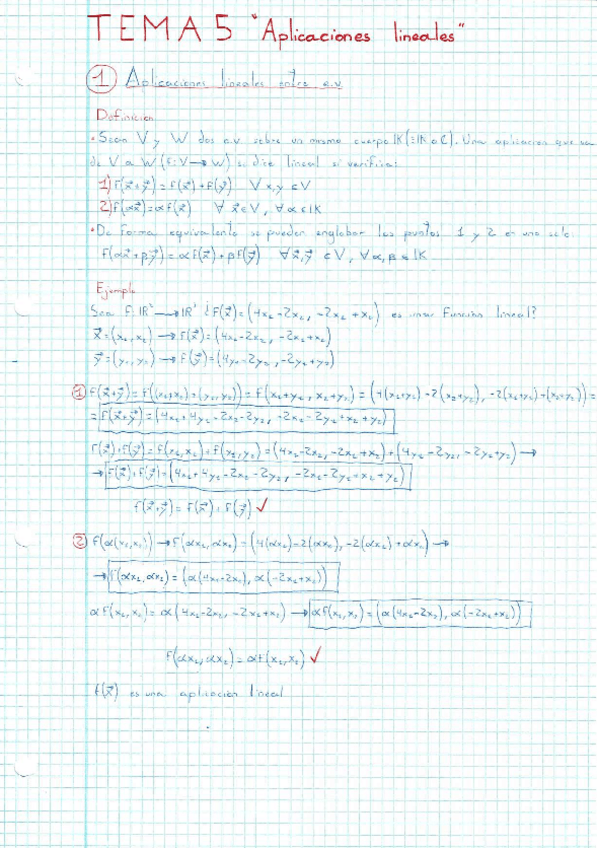 TEMA 5 "Aplicaciones lineales"
1 Aplicaciones lineales entre e.v
Definición
• Sean V y W dos e.v sobre un mismo cuerpo IK (= IR o C). Una aplicación que va
de V a W (f: V → W) se dice lineal si verifica:
1) f(x⃗+y⃗) = f(x⃗) + f(y⃗) ∀ x,y ∈ V
2) f(αx⃗) = αf(x⃗) ∀ x⃗ ∈ V, ∀ α ∈ IK
• De forma equivalente se pueden englobar los puntos 1 y 2 en uno solo:
f(αx⃗ + βy⃗) = αf(x⃗) + βf(y⃗) ∀ x⃗,y⃗ ∈ V, ∀ α, β ∈ IK
Ejemplo
Sea f: IR² → IR² ¿f(x⃗) = (4x₁ - 2x₂, -2x₁ + x₂) es una función lineal?
x⃗ = (x₁, x₂) → f(x⃗) = (4x₁ - 2x₂, -2x₁ + x₂)
y⃗ = (y₁, y₂) → f(y⃗) = (4y₁ - 2y₂, -2y₁ + y₂)
1 f(x⃗+y⃗) = f((x₁,x₂) + (y₁,y₂)) = f(x₁+y₁, x₂+y₂) = (4(x₁+y₁) - 2(x₂+y₂), -2(x₁+y₁) + (x₂+y₂)) =
= f(x⃗+y⃗) = (4x₁ + 4y₁ - 2x₂ - 2y₂, -2x₁ - 2y₁ + x₂ + y₂)
f(x⃗) + f(y⃗) = f(x₁, x₂) + f(y₁, y₂) = (4x₁ - 2x₂, -2x₁ + x₂) + (4y₁ - 2y₂, -2y₁ + y₂) →
→ f(x⃗) + f(y⃗) = (4x₁ + 4y₁ - 2x₂ - 2y₂, -2x₁ - 2y₁ + x₂ + y₂)
f(x⃗+y⃗) = f(x⃗) + f(y⃗) ✓
2 f(α(x₁, x₂)) → f(αx₁, αx₂) = (4(αx₁) - 2(αx₂), -2(αx₁) + αx₂) →
→ f(αx₁, αx₂) = (α(4x₁ - 2x₂), α(-2x₁ + x₂))
αf(x₁, x₂) = α(4x₁ - 2x₂, -2x₁ + x₂) → αf(x₁, x₂) = (α(4x₁ - 2x₂), α(-2x₁ + x₂))
f(αx₁, αx₂) = αf(x₁, x₂) ✓
f(x⃗) es una aplicación lineal